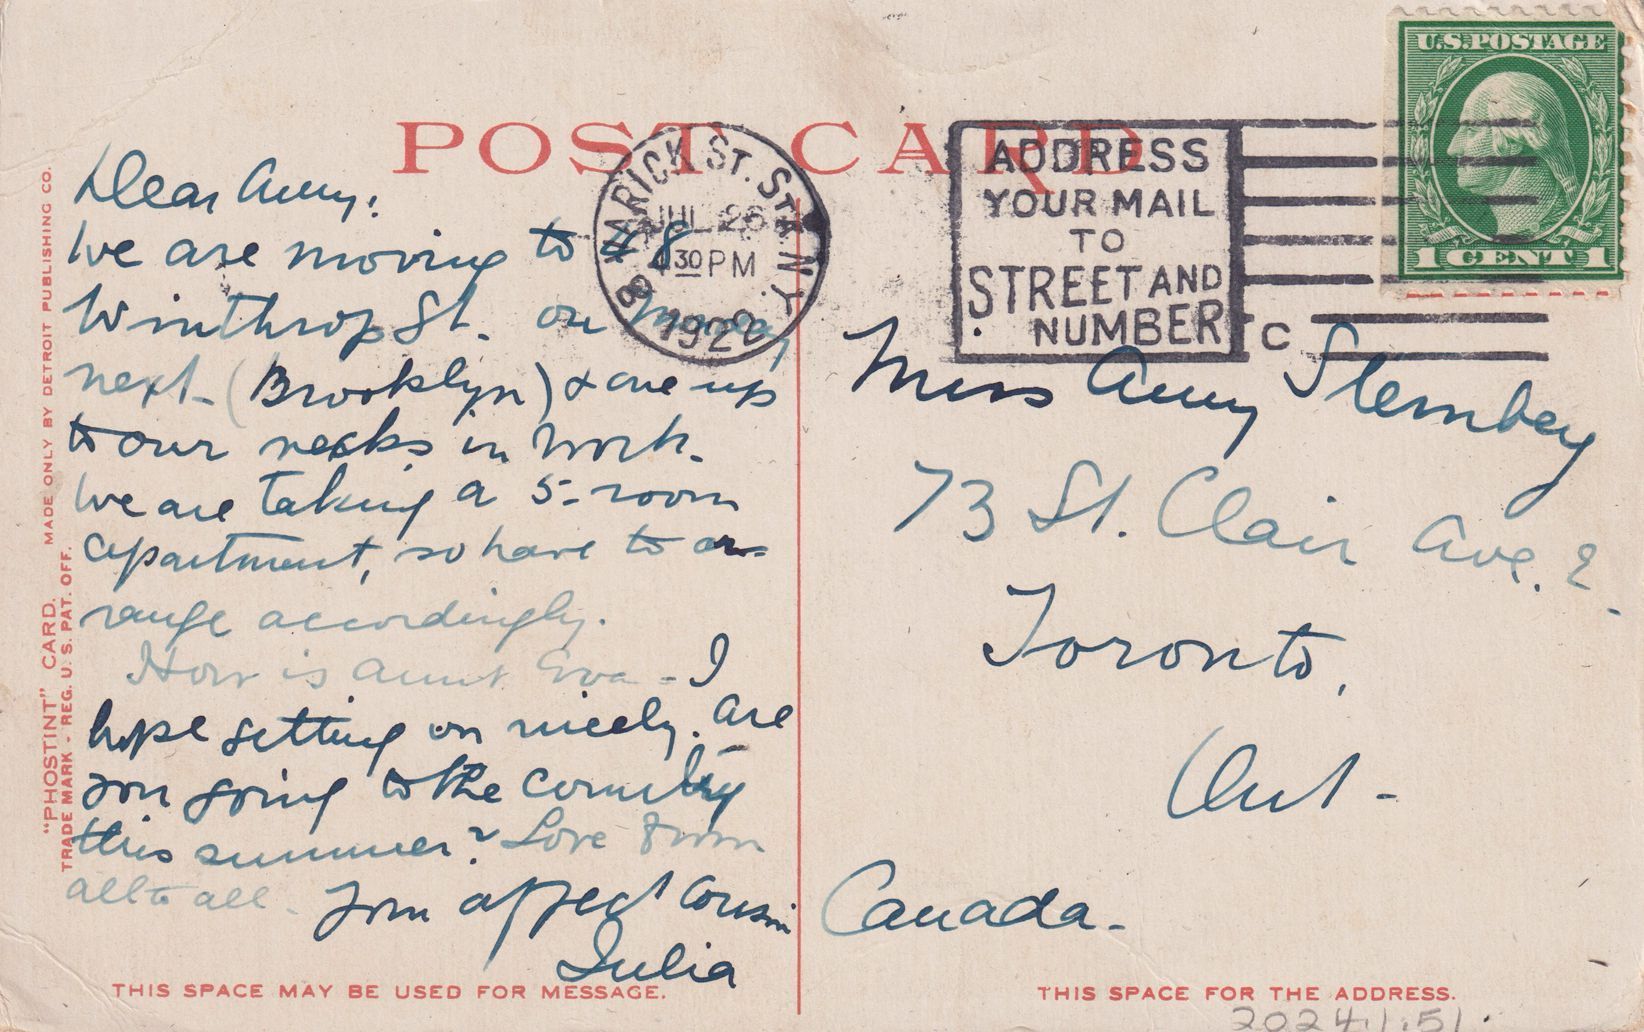 POST CARD
"PHOSTINT" CARD. MADE ONLY BY DETROIT PUBLISHING CO.
TRADE MARK - REG. U. S. PAT. OFF.
Dear Amy:
We are moving to # 8
Winthrop St. on Monday
next - (Brooklyn) & are up
to our necks in work.
We are taking a 5-room
apartment, so have to ar-
range accordingly.
How is Aunt Eva - I
hope getting on nicely. Are
you going to the country
this summer? Love from
all to all. Your affect cousin
Julia
THIS SPACE MAY BE USED FOR MESSAGE.
VARICK ST. STA. N.Y.
JUL 26
4 30 PM
1922
ADDRESS
YOUR MAIL
TO
STREET AND
NUMBER
C
U.S. POSTAGE
1 CENT 1
Miss Amy Stembey
73 St. Clair Ave. E.
Toronto,
Ont -
Canada -
THIS SPACE FOR THE ADDRESS.
2024.1.51.